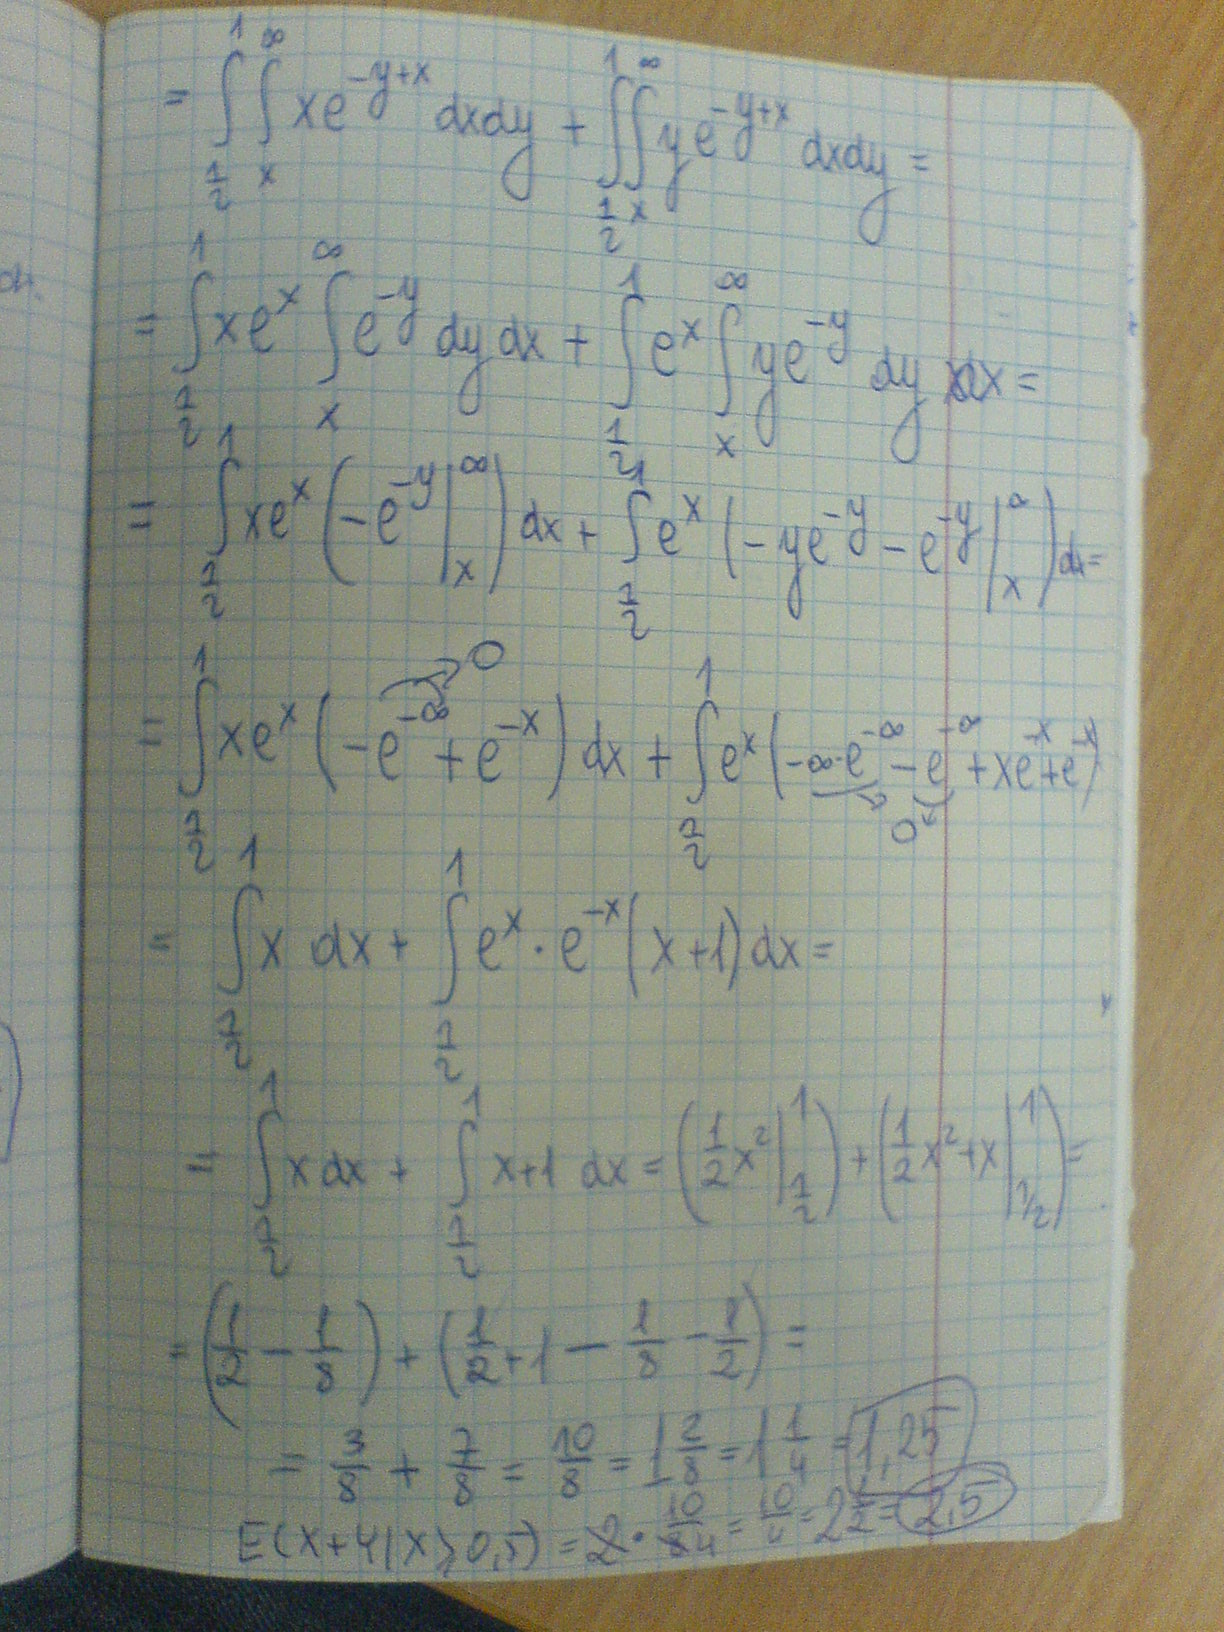 = ∫_{1/2}^{1} ∫_{x}^{∞} xe^{-y+x} dxdy + ∫_{1/2}^{1} ∫_{x}^{∞} ye^{-y+x} dxdy =
= ∫_{1/2}^{1} xe^{x} ∫_{x}^{∞} e^{-y} dy dx + ∫_{1/2}^{1} e^{x} ∫_{x}^{∞} ye^{-y} dy dx =
= ∫_{1/2}^{1} xe^{x} (-e^{-y} |_{x}^{∞}) dx + ∫_{1/2}^{1} e^{x} (-ye^{-y} - e^{-y} |_{x}^{∞}) dx =
= ∫_{1/2}^{1} xe^{x} (-e^{-∞} → 0 + e^{-x}) dx + ∫_{1/2}^{1} e^{x} (-∞·e^{-∞} - e^{-∞} → 0 + xe^{-x} + e^{-x})
= ∫_{1/2}^{1} x dx + ∫_{1/2}^{1} e^{x} · e^{-x} (x+1) dx =
= ∫_{1/2}^{1} x dx + ∫_{1/2}^{1} x+1 dx = (1/2 x² |_{1/2}^{1}) + (1/2 x² + x |_{1/2}^{1}) =
= (1/2 - 1/8) + (1/2 + 1 - 1/8 - 1/2) =
= 3/8 + 7/8 = 10/8 = 1 2/8 = 1 1/4 = 1,25
E(X+Y|X≥0,5) = 2 · 10/8 4 = 10/4 = 2 1/2 = 2,5